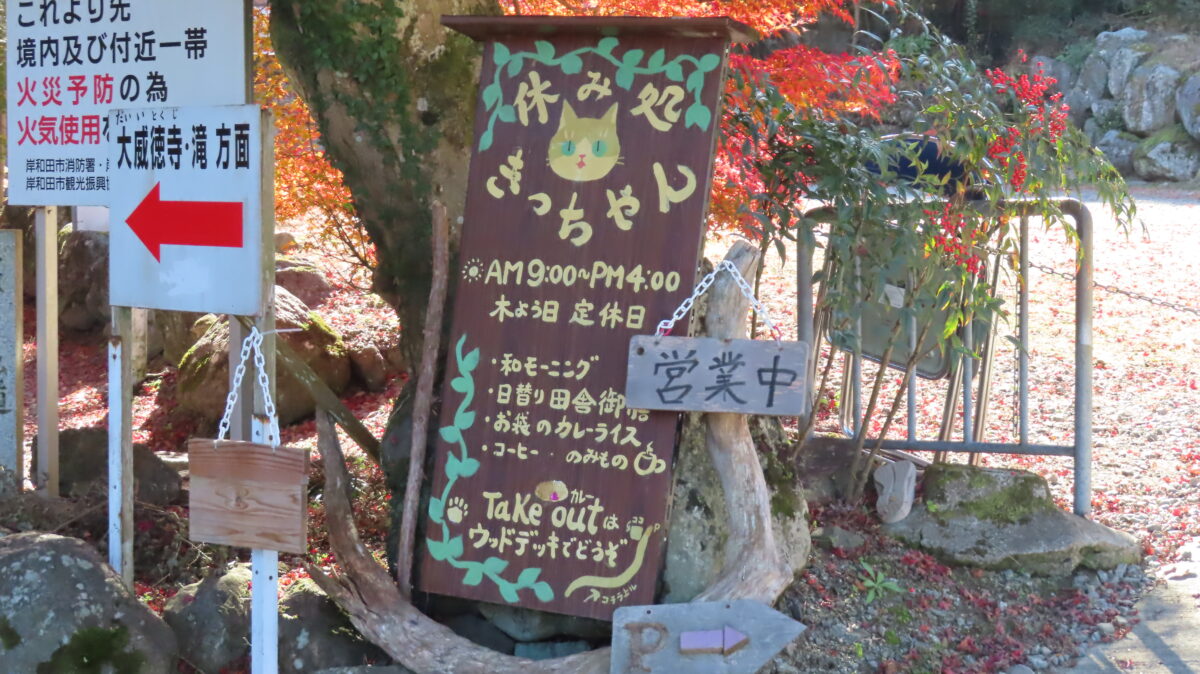 これより先
境内及び付近一帯
火災予防の為
火気使用
岸和田市消防署・
岸和田市観光振興
だいいとくじ
大威徳寺・滝 方面
休み処
きっちゃん
AM9:00~PM4:00
木よう日 定休日
営業中
・和モーニング
・日替り田舎御膳
・お袋のカレーライス
・コーヒー・のみもの
カレー
Take outは
ウッドデッキでどうぞ
P